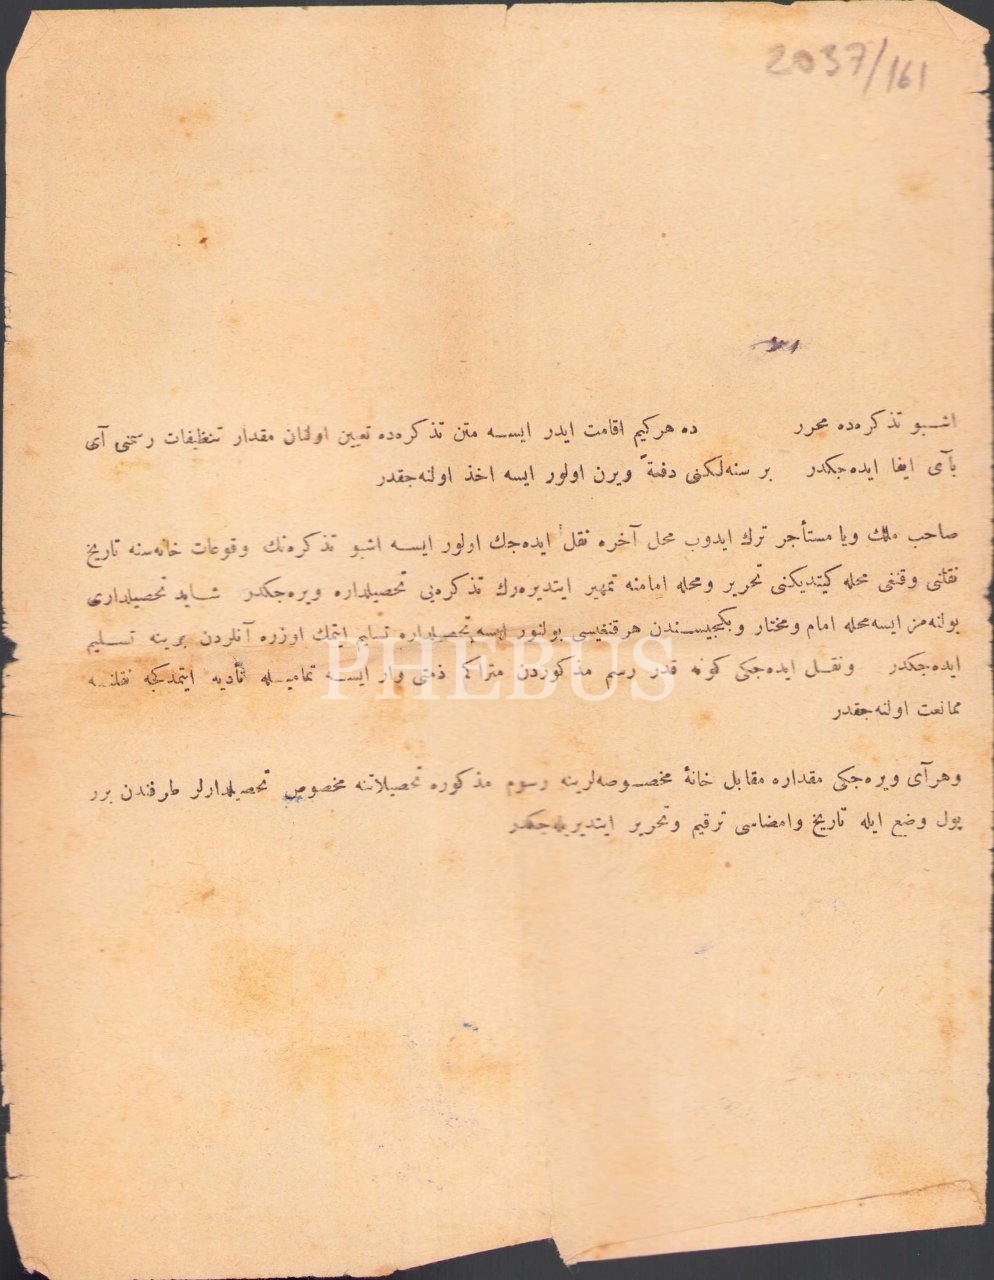 2037/161
اشبو تذكره‌ده محرر ده هركيم اقامت ايدر ايسه متن تذكره‌ده تعيين اولنان مقدار تنظيفات رسمنى آى
بآى ايفا ايده‌جكدر بر سنه‌لكنى دفعةً ويرن اولور ايسه اخذ اولنه‌جقدر
صاحب ملك ويا مستأجر ترك ايدوب محل آخره نقل ايده‌جك اولور ايسه اشبو تذكره‌نك وقوعات خانه‌سنه تاريخ
نقلنى وقنغى محله كيتديكنى تحرير ومحله امامنه تمهير ايتديره‌رك تذكره‌يى تحصيلداره ويره‌جكدر شايد تحصيلدارى
بولنه‌مز ايسه محله امام ومختار وبكجيسندن هرقنغيسى بولنور ايسه تحصيلداره تسليم ايتمك اوزره آنلردن برينه تسليم
ايده‌جكدر ونقل ايده‌جكى كونه قدر رسم مذكوردن متراكم ذمتى وار ايسه تماميله تأديه ايتمدكجه نقلنه
ممانعت اولنه‌جقدر
وهرآى ويره‌جكى مقداره مقابل خانهٔ مخصوصه‌لرينه رسوم مذكوره تحصيلاتنه مخصوص تحصيلدارلر طرفندن برر
پول وضع ايله تاريخ وامضاسى ترقيم وتحرير ايتديريله‌جكدر
PHEBUS